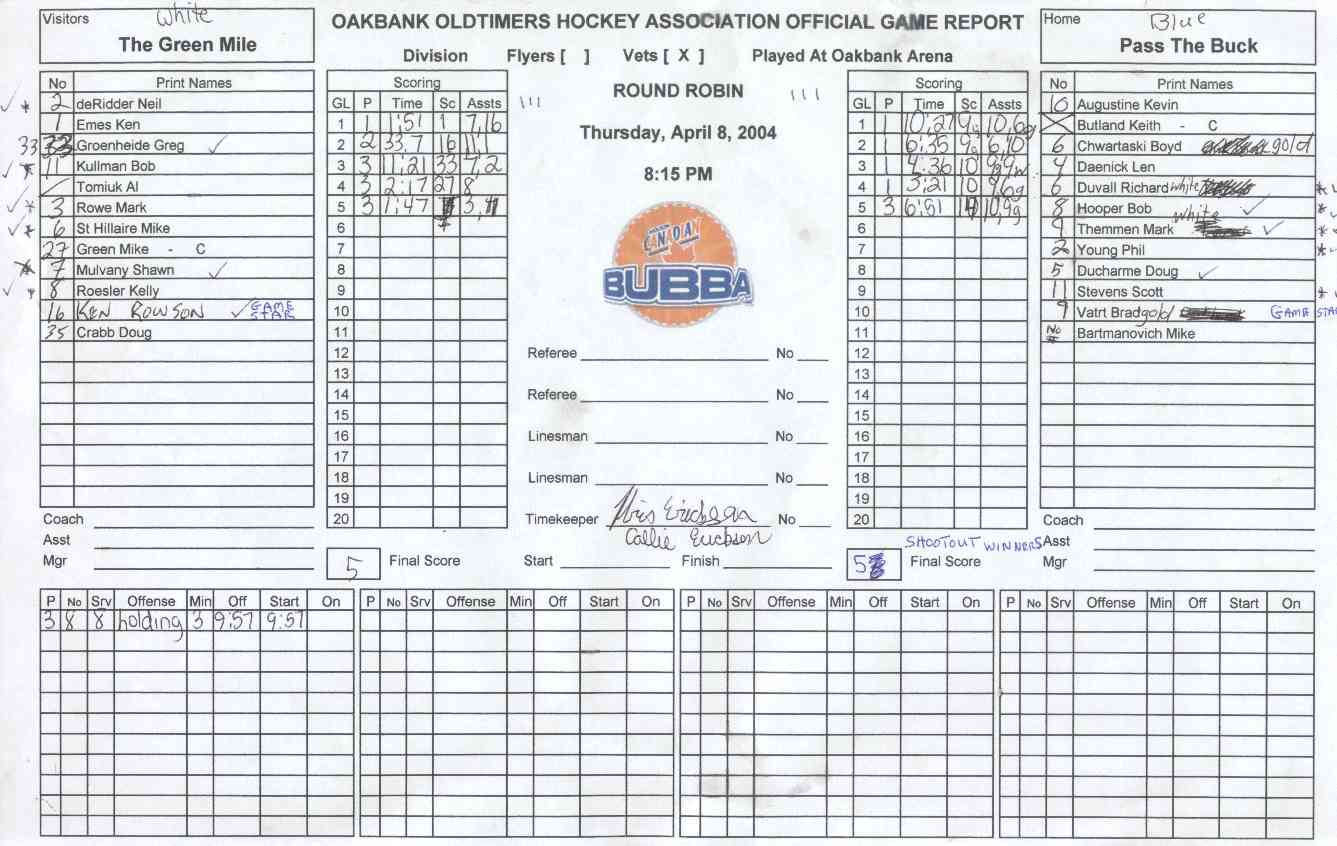 Visitors White
The Green Mile
OAKBANK OLDTIMERS HOCKEY ASSOCIATION OFFICIAL GAME REPORT
Division Flyers [ ] Vets [ X ] Played At Oakbank Arena
Home Blue
Pass The Buck
No Print Names
2 deRidder Neil
1 Emes Ken
33 33 Groenheide Greg ✓
11 Kullman Bob
Tomiuk Al
3 Rowe Mark
6 St Hillaire Mike
27 Green Mike - C
7 Mulvany Shawn ✓
8 Roesler Kelly
16 KEN ROWSON ✓ GAME STAR
35 Crabb Doug
Coach
Asst
Mgr
Scoring
GL P Time Sc Assts
1 1 1:51 1 7,16
2 2 33.7 16 11,1
3 3 11:21 33 7,2
4 3 2:17 27 8
5 3 1:47 3,
6
7
8
9
10
11
12
13
14
15
16
17
18
19
20
5 Final Score
ROUND ROBIN
Thursday, April 8, 2004
8:15 PM
CANADA
BUBBA
Referee No
Referee No
Linesman No
Linesman No
Timekeeper Kris Erickson No
Callie Erickson
Start Finish
Scoring
GL P Time Sc Assts
1 1 10:27 9g 10,6g
2 1 6:35 9g 6,10
3 1 4:36 10
4 1 3:21 10 9,6g
5 3 6:51 10,9g
6
7
8
9
10
11
12
13
14
15
16
17
18
19
20
SHOOTOUT WINNERS
5 Final Score
No Print Names
10 Augustine Kevin
Butland Keith - C
6 Chwartaski Boyd gold
4 Daenick Len
6 Duvall Richard white
8 Hooper Bob ✓
9 Themmen Mark white ✓
2 Young Phil
5 Ducharme Doug ✓
11 Stevens Scott
9 Vatrt Brad gold GAME STAR
No # Bartmanovich Mike
Coach
Asst
Mgr
P No Srv Offense Min Off Start On
3 8 8 holding 3 9:57 9:57
P No Srv Offense Min Off Start On
P No Srv Offense Min Off Start On
P No Srv Offense Min Off Start On